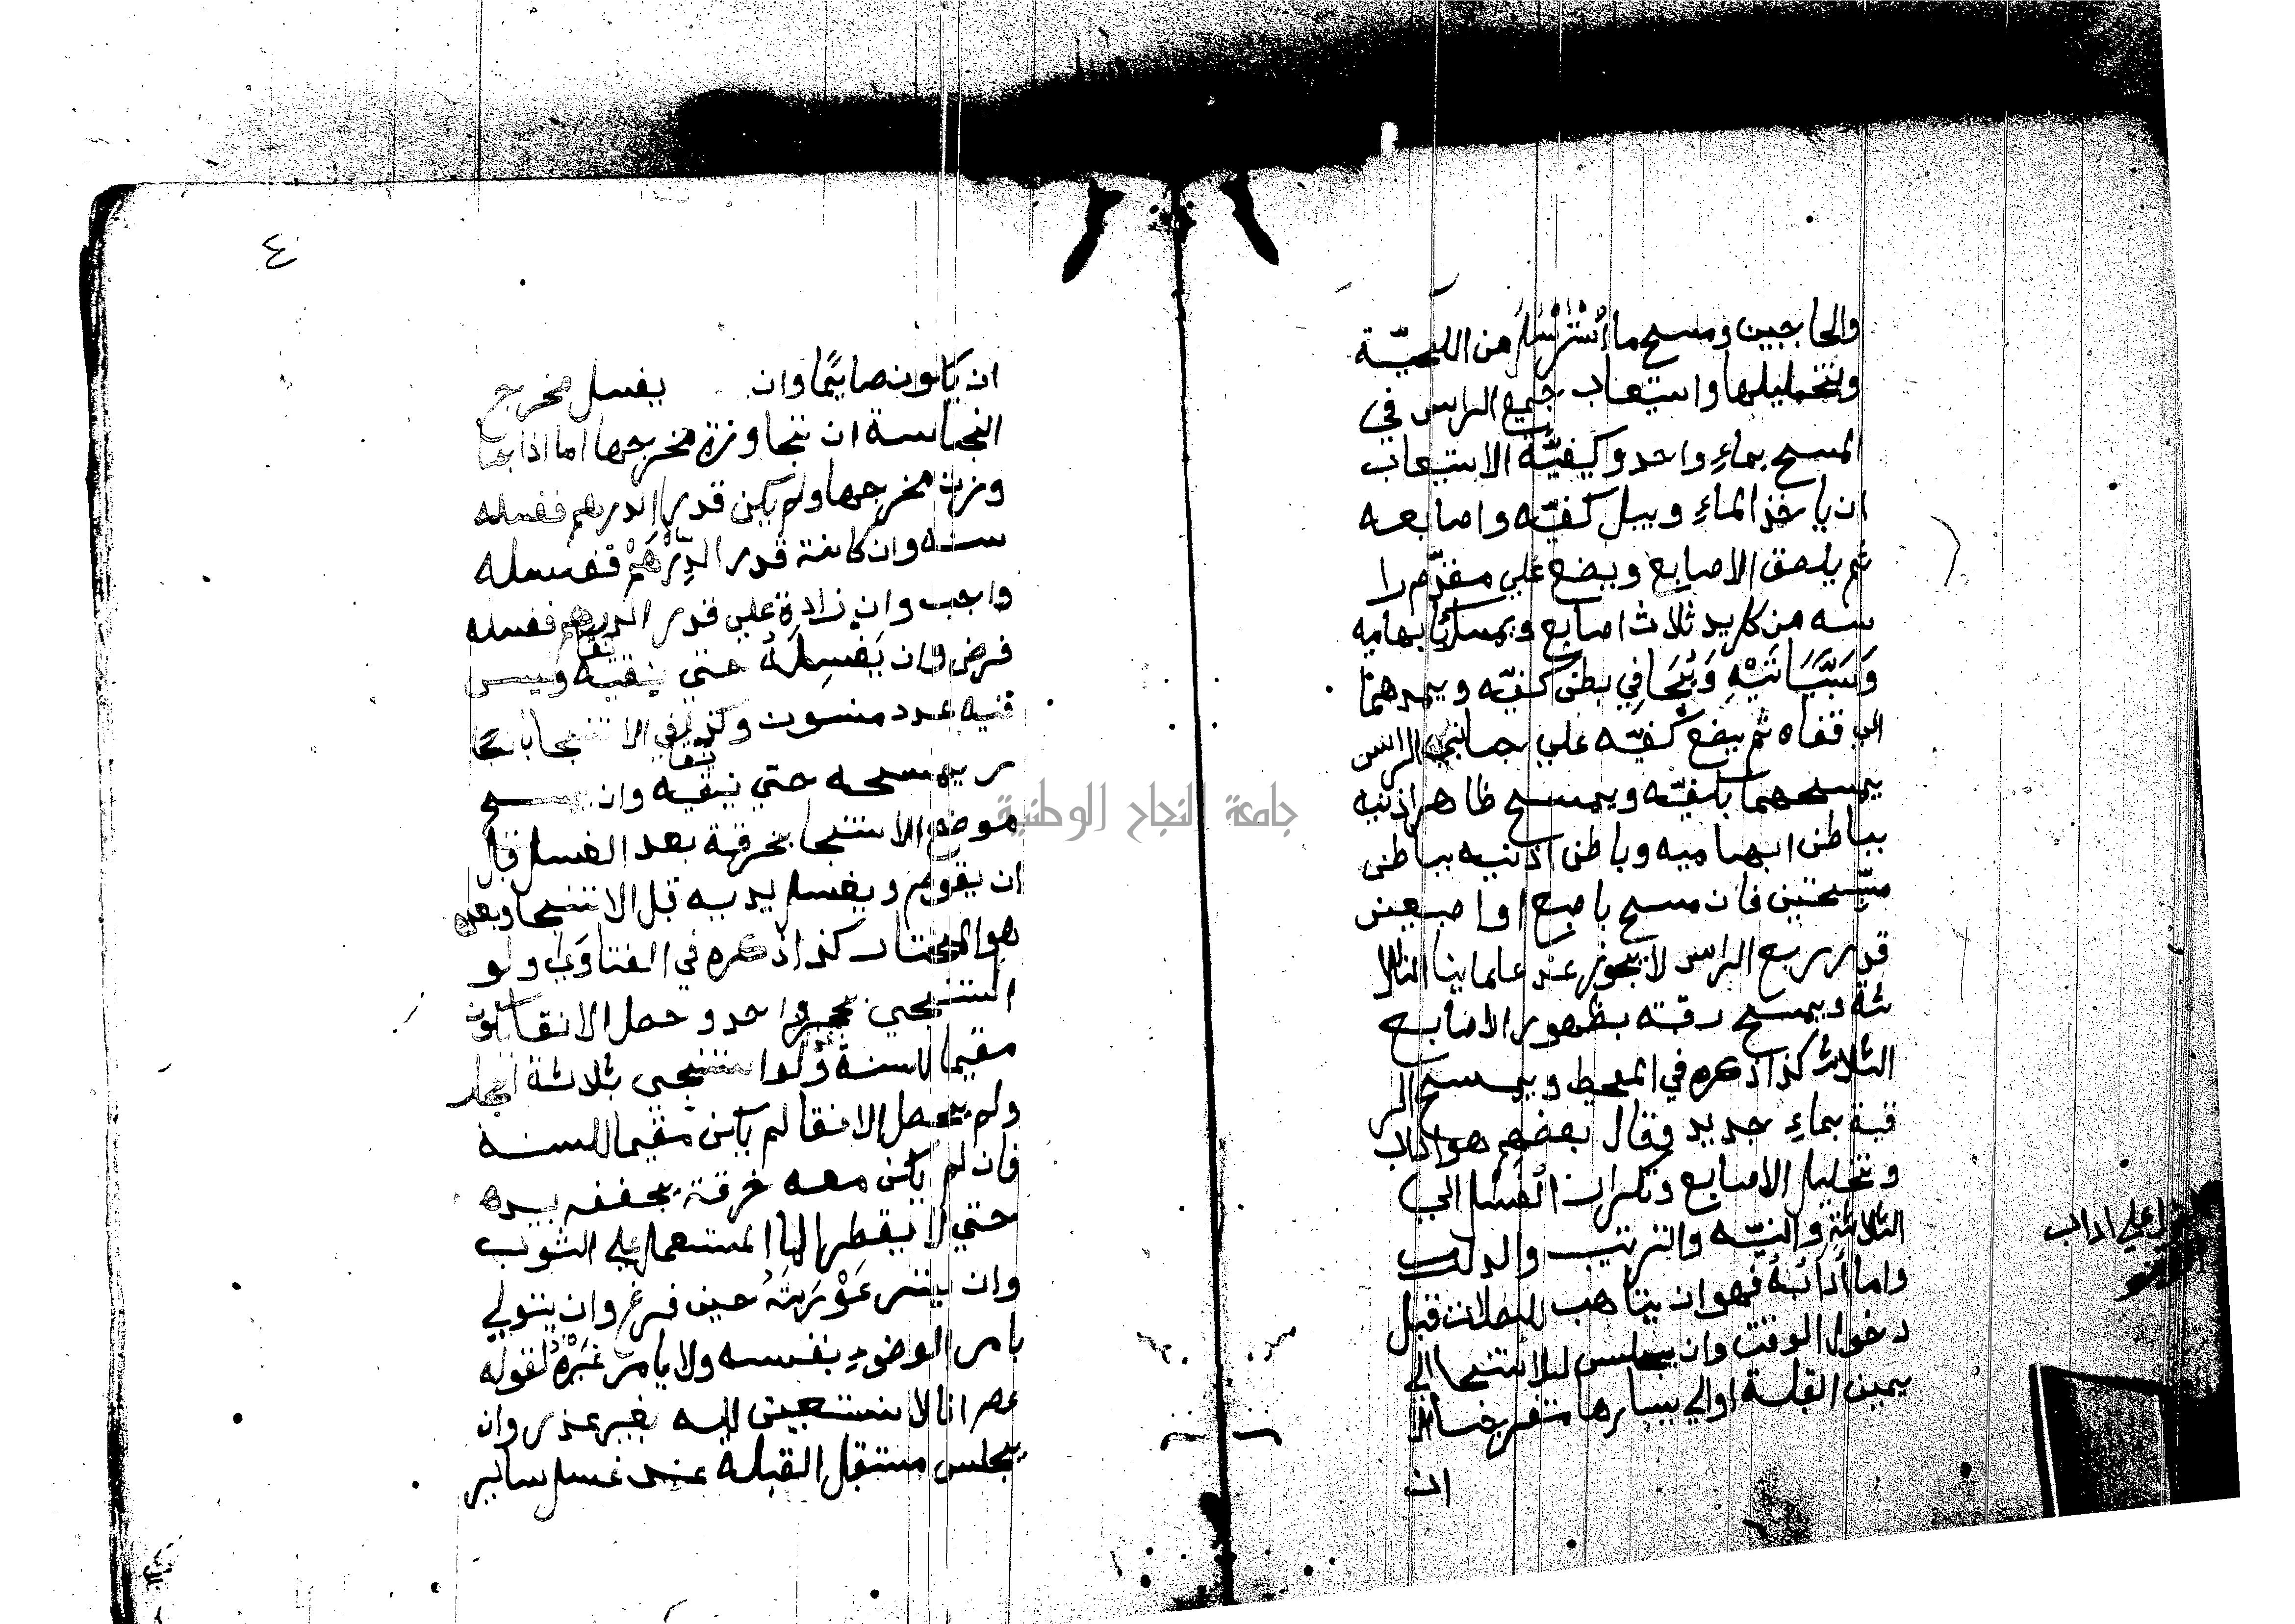 والحاجبين ومسح ما اُسْتُرْسِلَ من اللحيّة
وتخليلها واستيعاب جميع الراس في
المسح بماءِ واحد وكيفيّة الاستيعاب
ان ياخذ الماءِ ويبل كفيّه واصابعه
ثم يلصق الاصابع ويضع علي مقدّم را
سه من كل يد ثلاث اصابع ويمسك ابهاميه
وَسَبَّابَتَيْهِ وَيُجَافِي بطن كفيّه ويمدهما
الي قفاه ثم يضع كفيّه علي جانبي الراس
يمسحهما بكفيّه ويمسح ظاهر اذنيه
بباطن ابهاميه وباطن اذنيه بباطن
مسّبحتين فان مسح باصبع او اصبعين
قدر ربع الراس لا يجوز عند علماينا الثلا
ثة ويمسح رقبته بظهور الاصابع
الثلاث كذا ذكره في المحيط ويمسح الر
قبة بماءِ جديد وقال بعضهم هو اداب
وتخليل الاصابع وتكرار الغسل الي
الثلاثة والنيّه والترتيب والدلك
واما اَدَابُهُ فهو ان يتاهب للصلات قبل
دخول الوقت وان يجلس للاستنجا الي
يمين القبلة او الي يسارها متفرجا الا
ان
علي اداب
٤
ان يكون صايمًا وان يغسل مخرج
النجاسة ان تجاوزة مخرجها اما اذا
وزت مخرجها ولم يكن قدر الدرهم فغسله
سنه وان كانة قدر الدِّرْهَمْ فغسله
واجب وان زادة علي قدر الدرهم فغسله
فرض وان يَغْسِلَهُ حتي ينقيه وليس
فيه عدد مسنون وكذا في الاستنجا بالاحجا
ر يمسحه حتي ينقيه وان يمسح
موضع الاستنجا بخرقة بعد الغسل قبل
ان يقوم ويغسل يديه قبل الاستنجا وبعده
هو المختار كذا ذكره في الفتاوَي ولو
استنجي بحجر واحد وحصل الانقا يكون
مقيما للسنة ولو استنجي بثلاثة احجار
ولم يحصل الانقا لم يكن مقيما للسنة
فان لم يكن معه خرقة يجففه بيده
حتي لا يقطر الما المستعمل علي الثوب
وان يستر عَوْرَتَهُ حين فرغ وان يتولي
بامر الوضوءِ بنفسه ولا يامر غَيْرَهُ لقوله
عم انا لا نستعين اليه بغير عذر وان
يجلس مستقبل القبلة عند غسل ساير
جامعة النجاح الوطنية